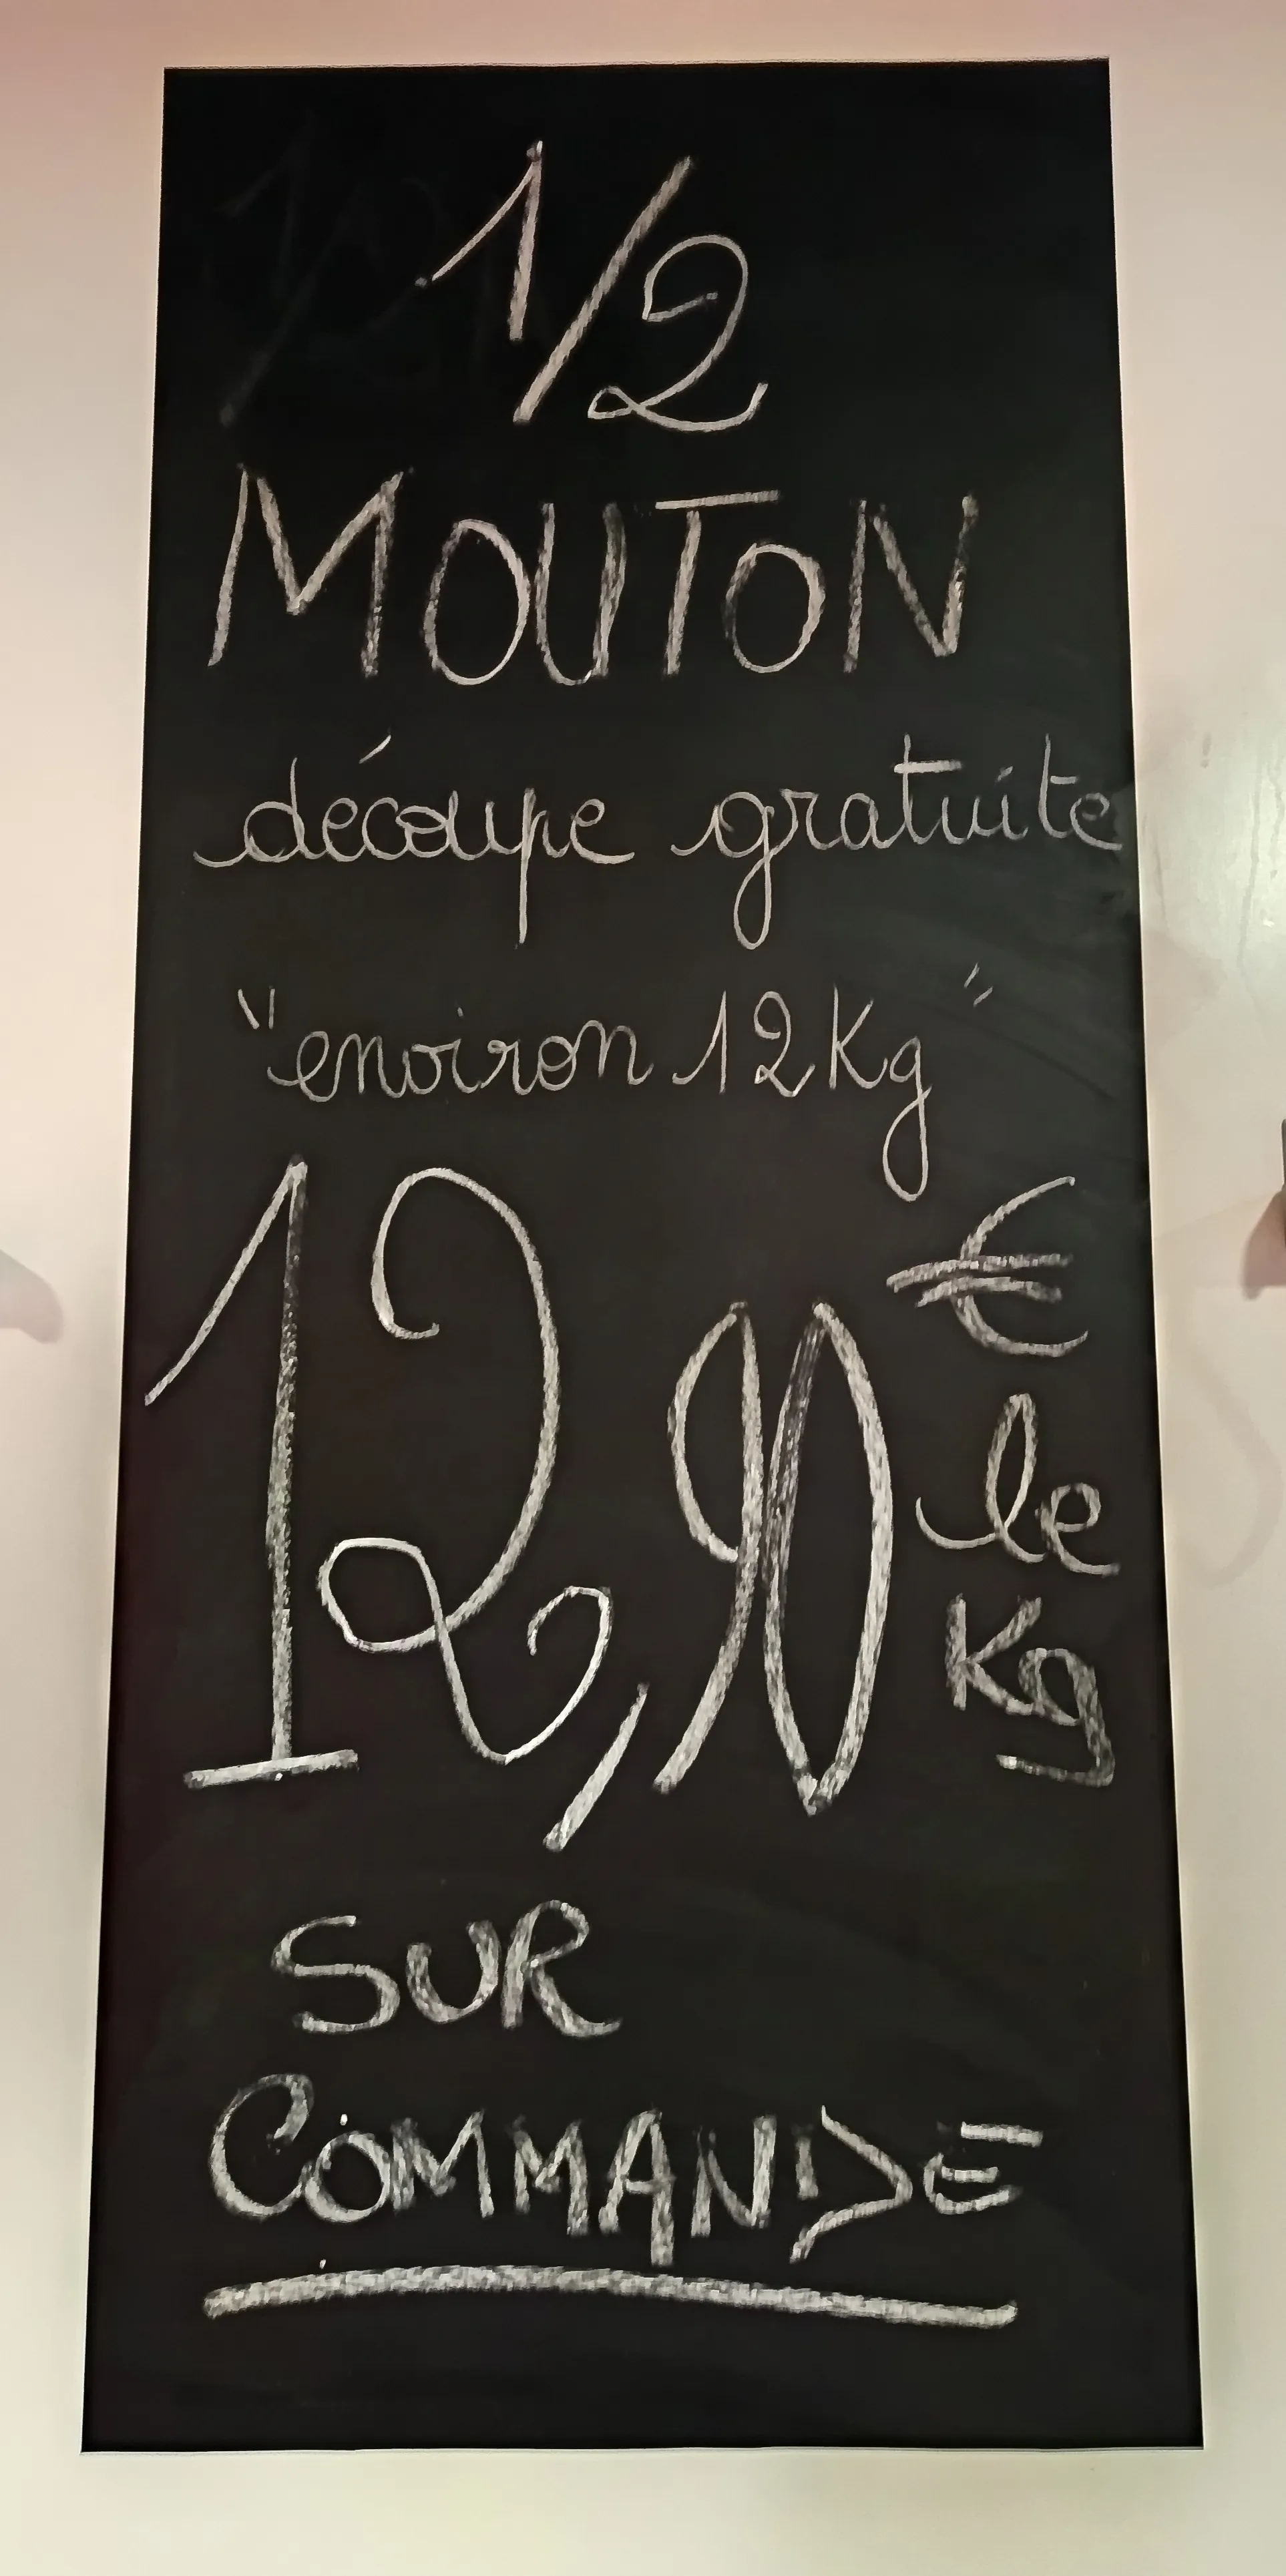 1/2
MOUTON
découpe gratuite
"environ 12Kg"
12,90 € le Kg
SUR
COMMANDE